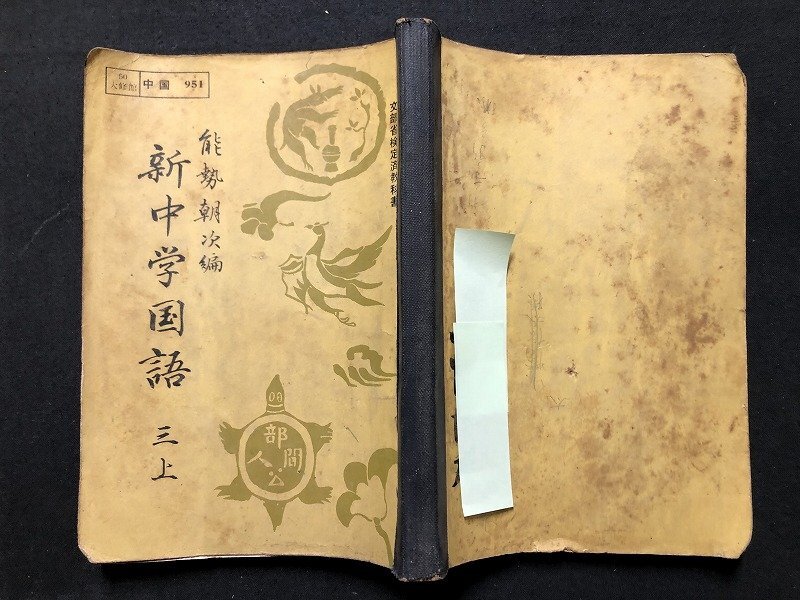 50
大修館
中国 951
能勢朝次編
新中学国語
三上
文部省検定済教科書
部間人公